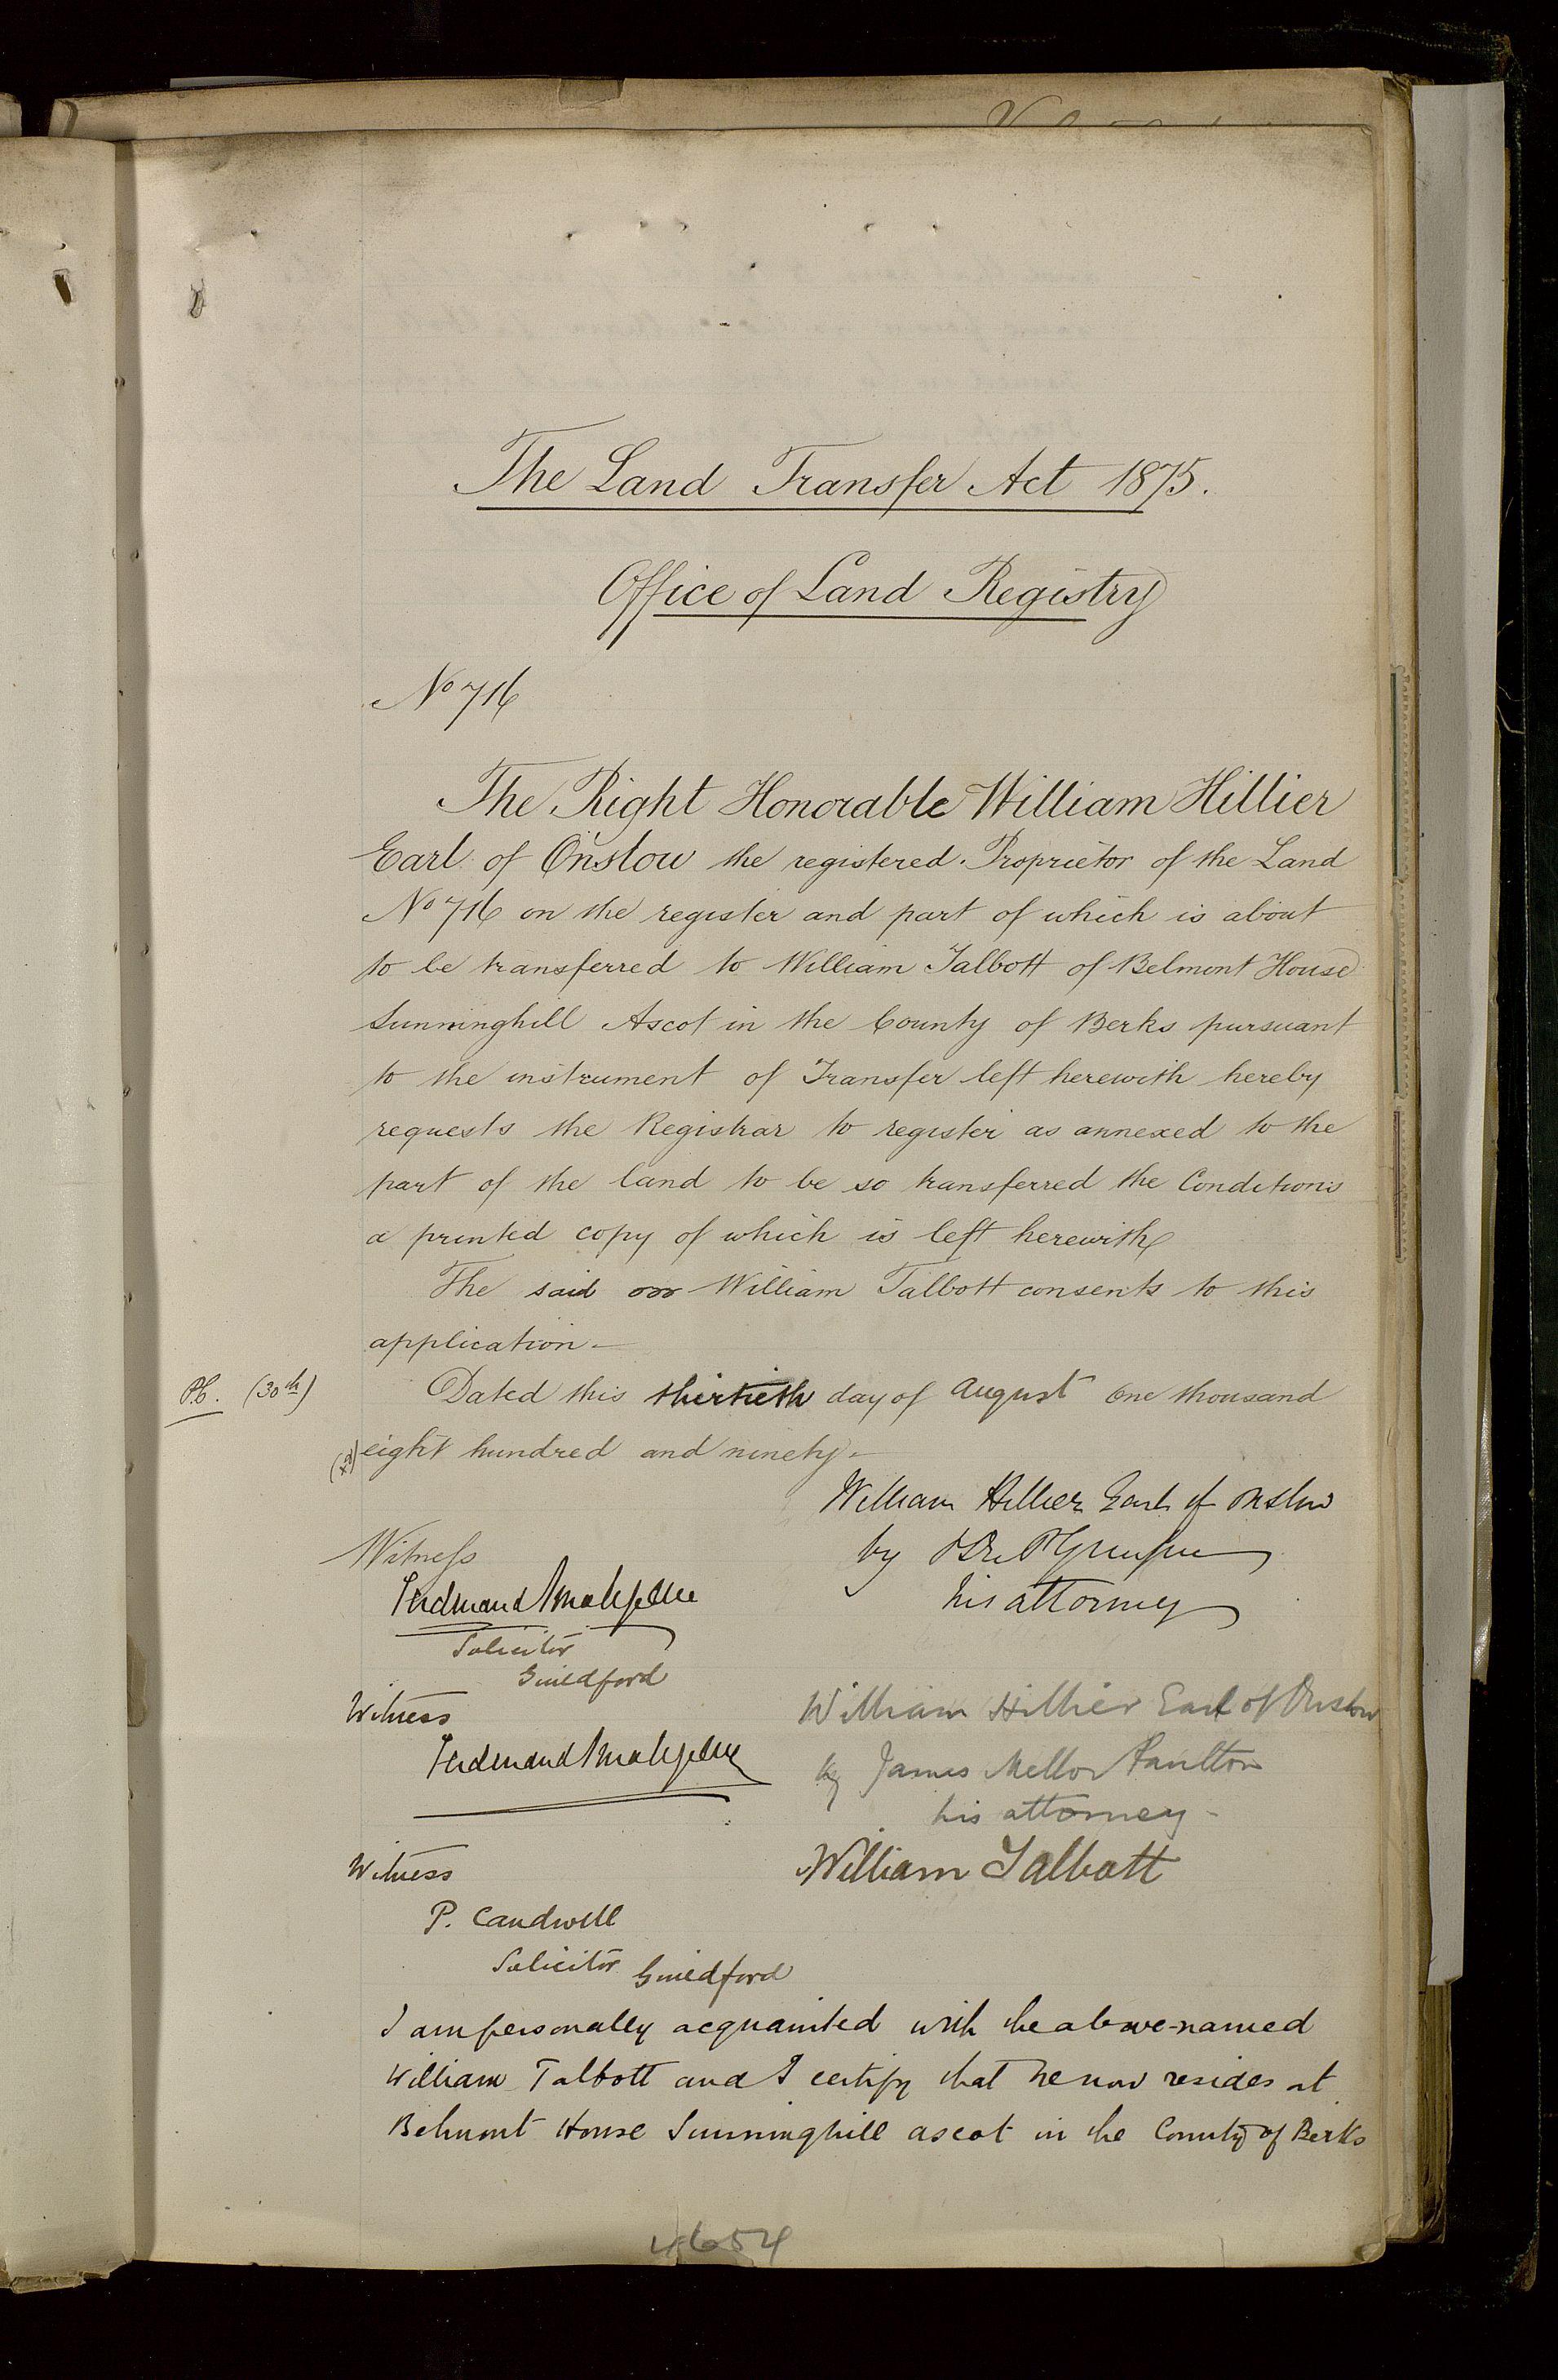 The Land Transfer Act 1875.
Office of Land Registry
No 716
The Right Honorable William Hillier
Earl of Onslow the registered Proprietor of the Land
No 716 on the register and part of which is about
to be transferred to William Talbott of Belmont House
Sunninghill Ascot in the County of Berks pursuant
to the instrument of Transfer left herewith hereby
requests the Registrar to register as annexed to the
part of the land to be so transferred the Conditions
a printed copy of which is left herewith
The said William Talbott consents to this
application —
(30th) Dated this thirtieth day of August One thousand
eight hundred and ninety —
William Hillier Earl of Onslow
by
his attorney
Witness
Ferdinand Smallpeice
Solicitor
Guildford
Witness
Ferdinand Smallpeice
William Hillier Earl of Onslow
by James Mellor Paulton
his attorney -
Witness
William Talbott
P. Candwell
Solicitor Guildford
I am personally acquainted with the above-named
William Talbott and I certify that he now resides at
Belmont House Sunninghill ascot in the County of Berks
4654